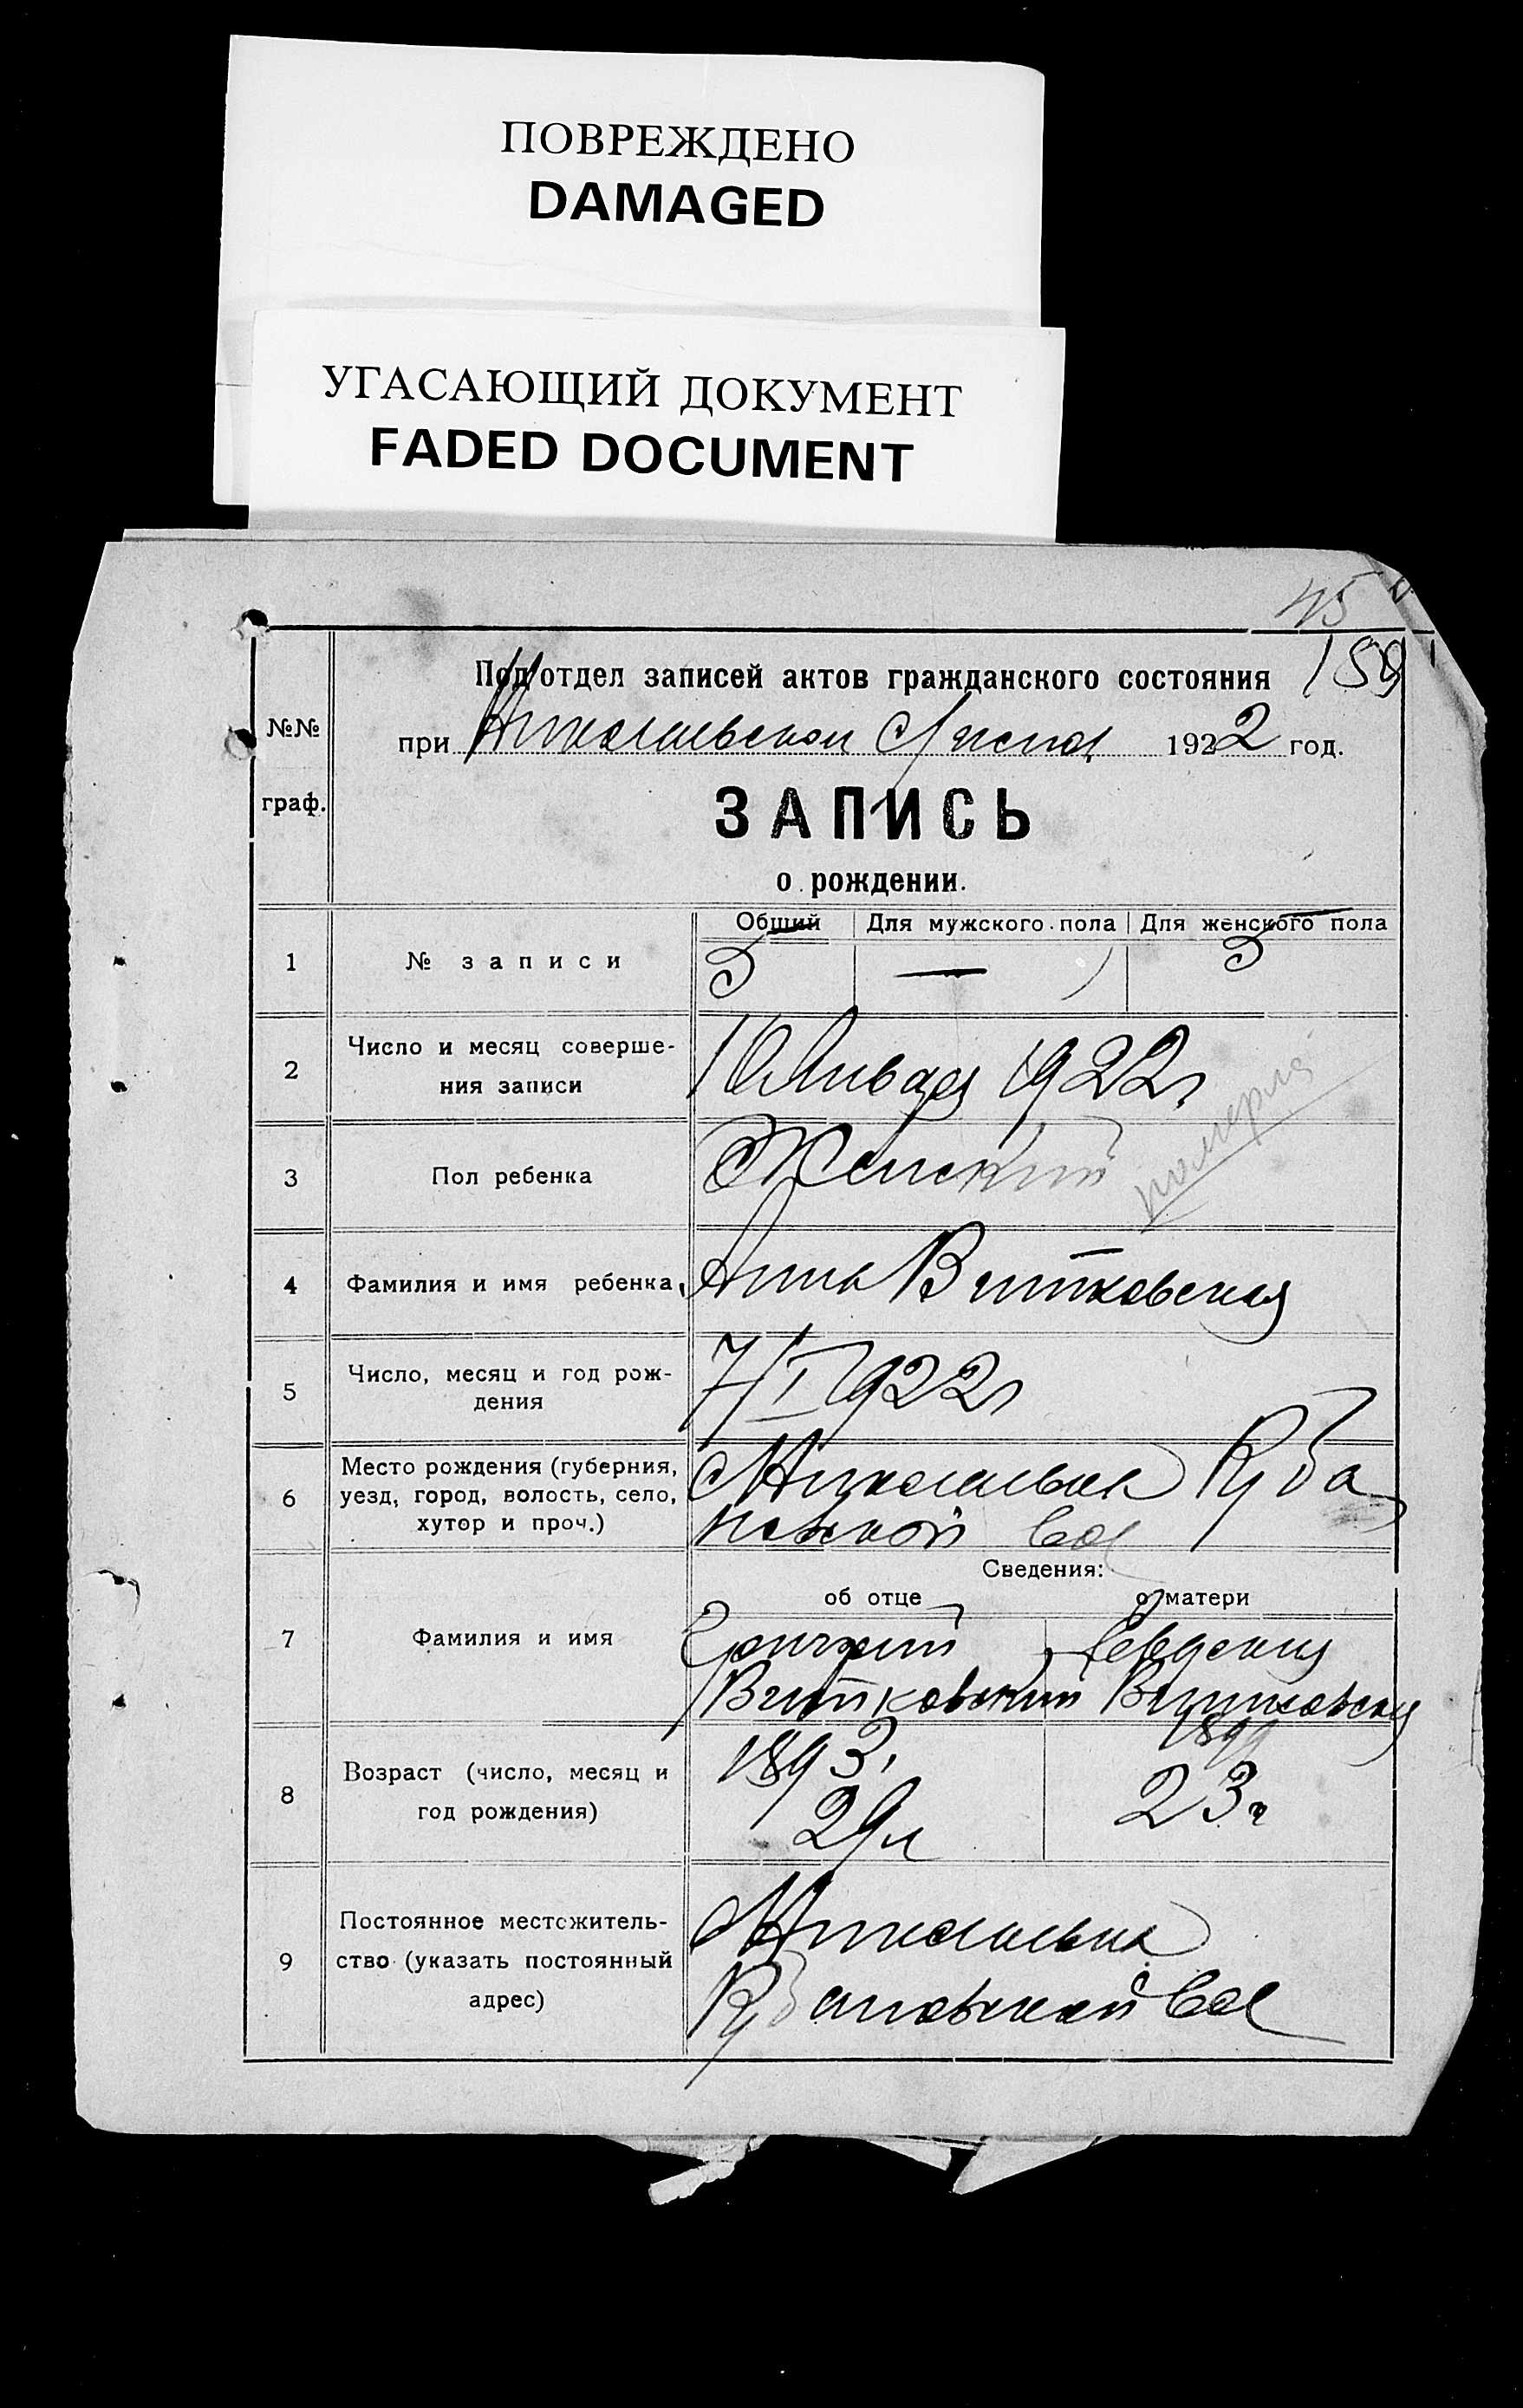 ПОВРЕЖДЕНО
DAMAGED
УГАСАЮЩИЙ ДОКУМЕНТ
FADED DOCUMENT
45
159
№№
граф.
Под'отдел записей актов гражданского состояния
при Николаевском 1922 год.
ЗАПИСЬ
о рождении.
Общий Для мужского пола Для женского пола
1 № записи 5 — 5
2 Число и месяц соверше-
ния записи
10 Января 1922 г.
3 Пол ребенка Женский
померла
4 Фамилия и имя ребенка Анна Витковская
5 Число, месяц и год рож-
дения
7/I 1922 г
6 Место рождения (губерния,
уезд, город, волость, село,
хутор и проч.)
Николаевка Куба
новской вол
Сведения:
об отце о матери
7 Фамилия и имя
Григорий
Витковский Витковская
8 Возраст (число, месяц и
год рождения)
1893. 1899
29 л 23 г
9 Постоянное местожитель-
ство (указать постоянный
адрес)
Николаевка
Кубановской вол